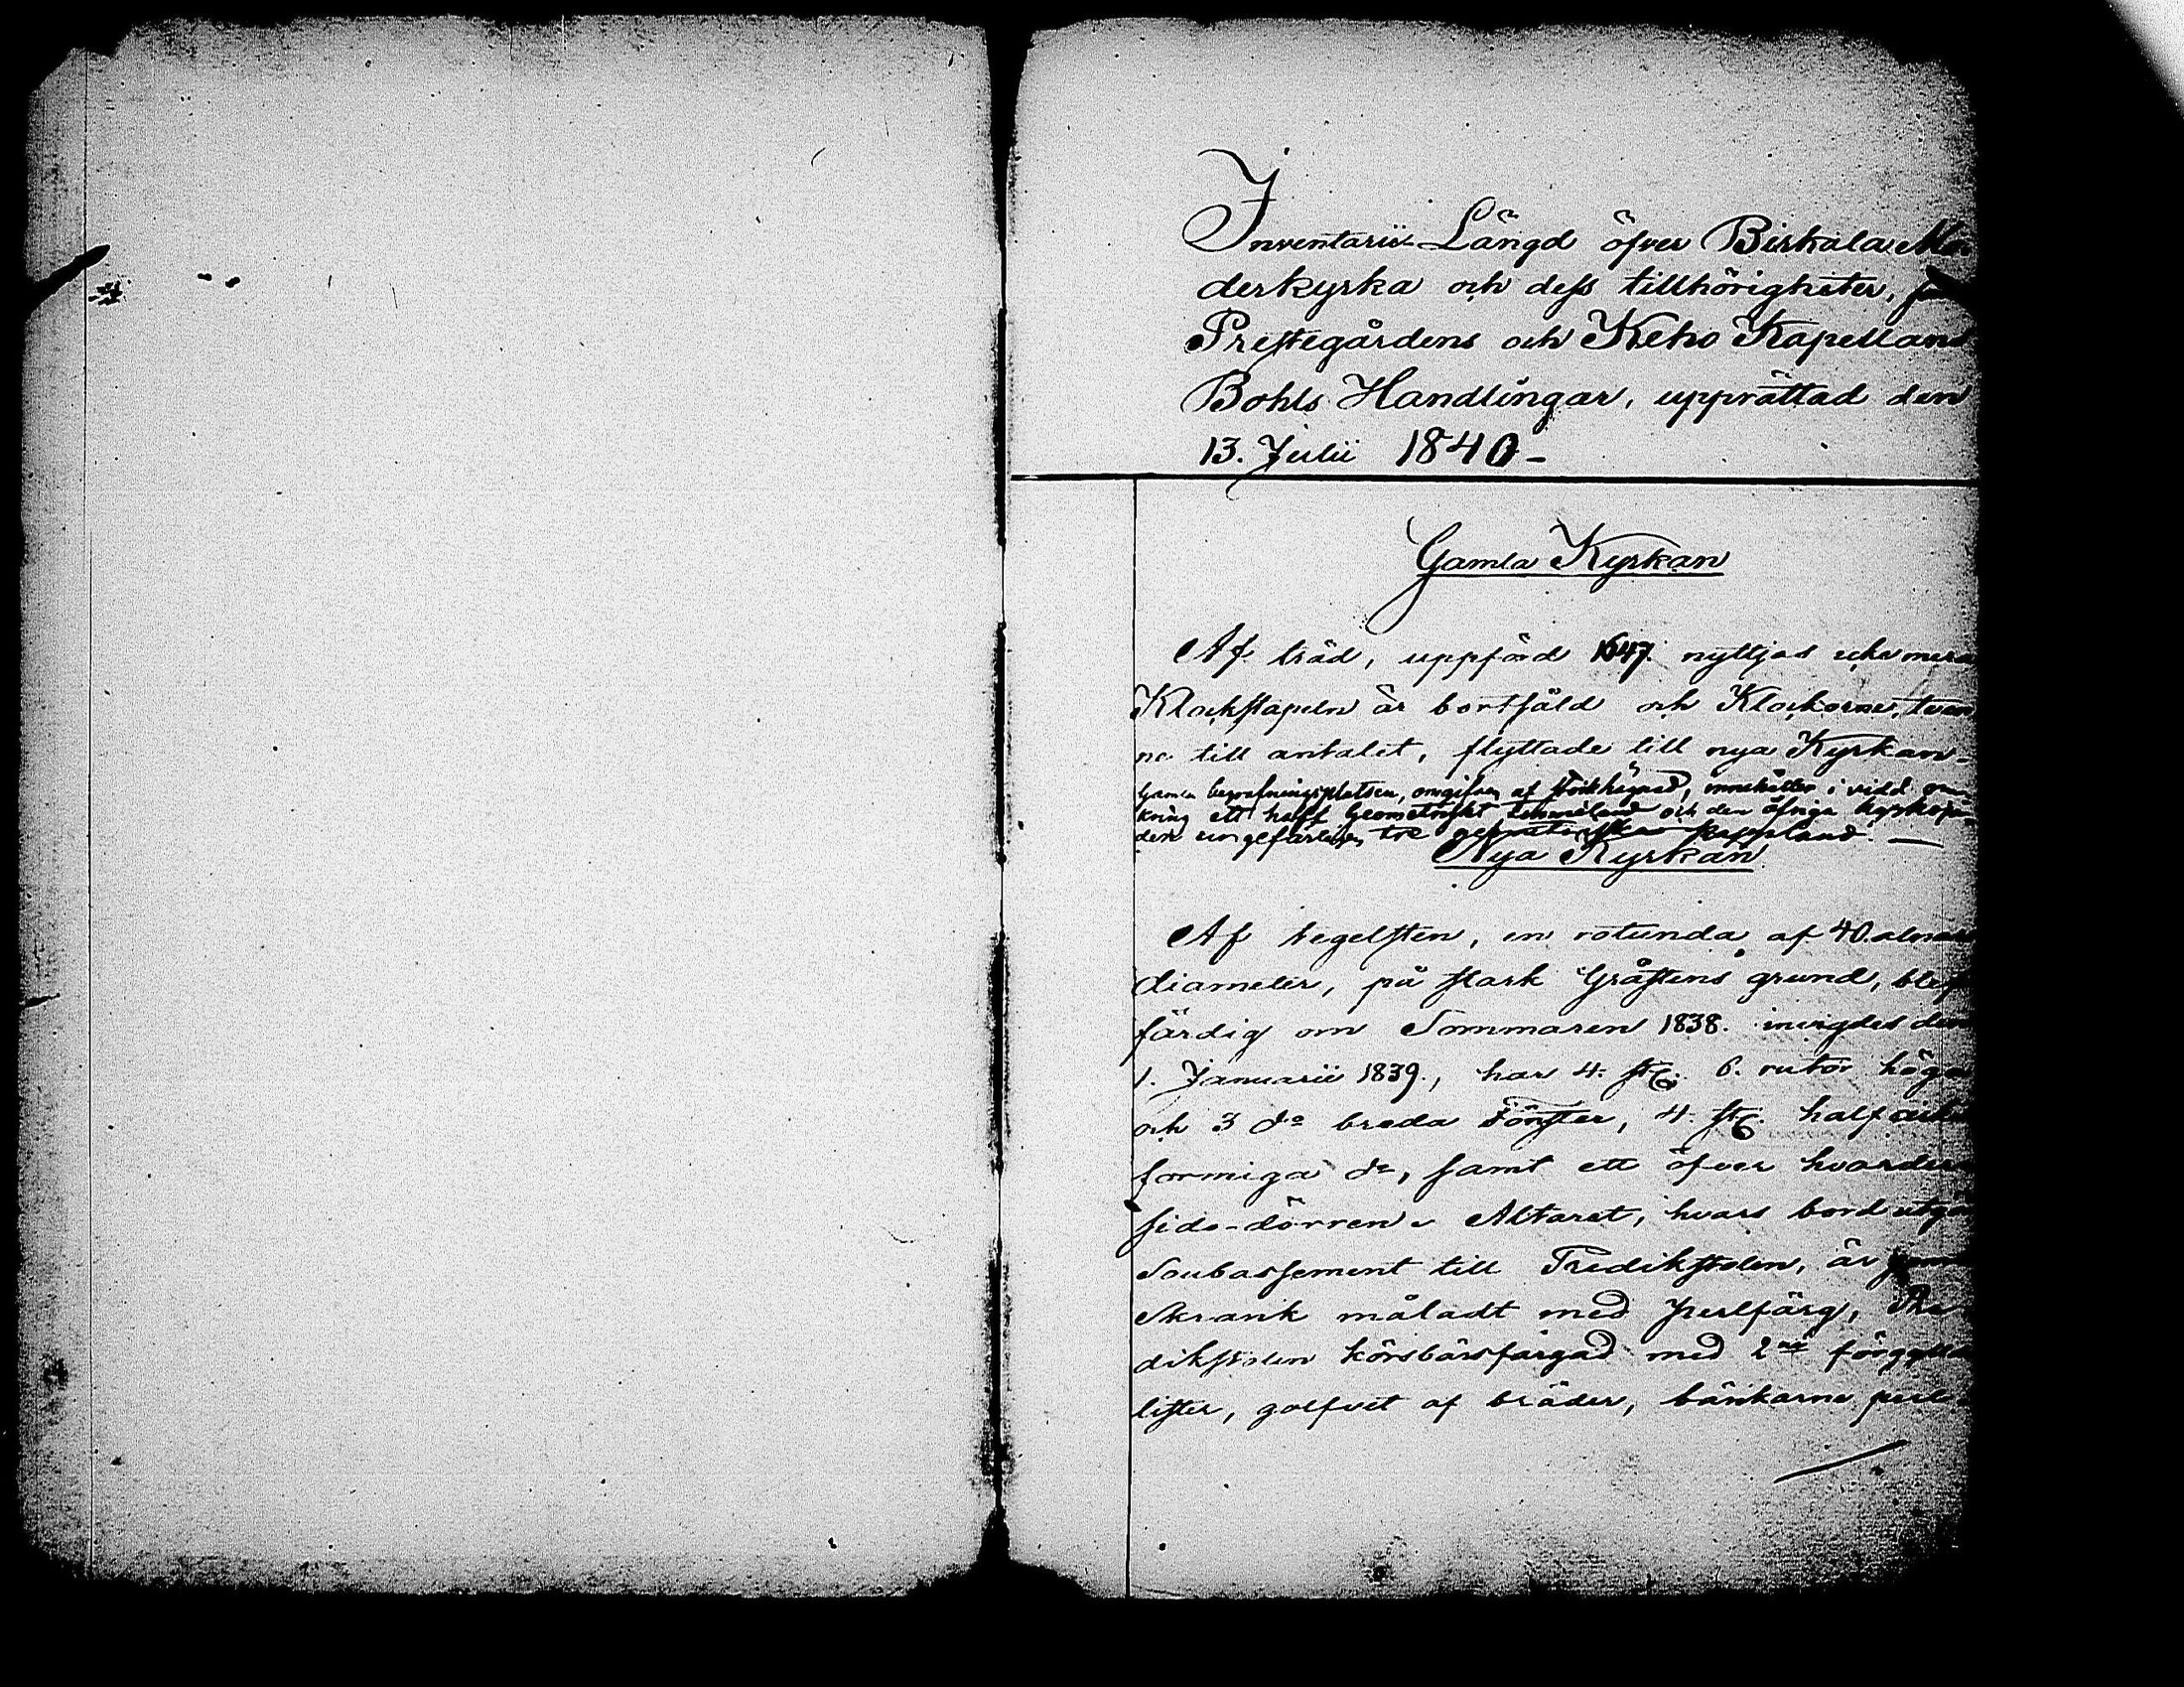 Inventarii Längd öfver Birkala Mo
derkyrka och dess tillhörigheter,
Prestegårdens och Keho Kapellans
Bohls Handlingar, upprättad den
13. Julii 1840-
Gamla Kyrkan
Af träd, uppförd 1647. nyttjas icke mera
Klockstapeln är bortfäld och Klockorne, tven
ne till antalet, flyttade till nya Kyrkan-
Gamla begrafningsplatsen, omgifven af hägnad, innehåller i vidd om
kring ett halft Geometriskt och den öfriga
den ungefärligen tre geometriska kappland. —
Nya Kyrkan
Af tegelsten, en rotunda af 40. alnars
diameter, på stark Gråstens grund, blef
färdig om Sommaren 1838. invigdes den
1. Januarii 1839., har 4. st. 6. rutor höga
och 3 do breda Fönster, 4. st. half
formiga do, samt ett öfver hvardera
sido-dörren. Altaret, hvars bord utgör
Soubassement till Predikstolen, är
skrank måladt med perlfärg, Pre
dikstolen körsbärsfärgad med 2ne förgyllda
lister, golfvet af bräder, bänkarne perl-